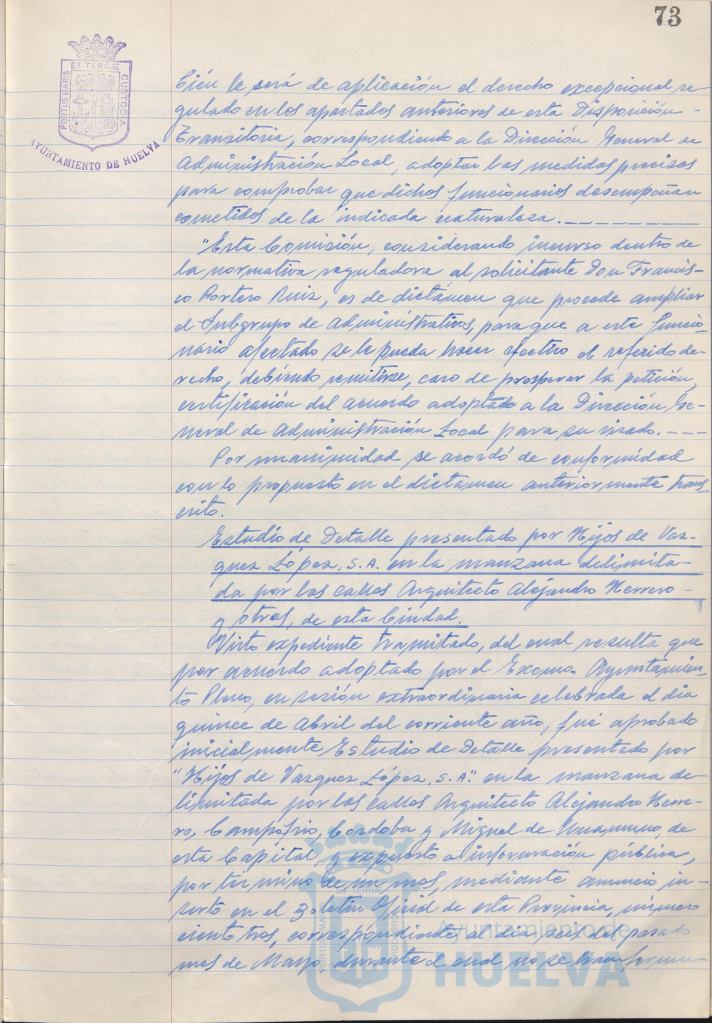 73
ET TERRAE
PORTUS MARIS
CUSTODIA
AYUNTAMIENTO DE HUELVA
bién le será de aplicación el derecho excepcional re-
gulado en los apartados anteriores de esta Disposición
Transitoria, correspondiendo a la Dirección General de
Administración Local, adoptar las medidas precisas
para comprobar que dichos funcionarios desempeñan
cometidos de la indicada naturaleza.
"Esta Comisión, considerando incurso dentro de
la normativa reguladora al solicitante Don Francis-
co Portero Ruiz, es de dictámen que procede ampliar
el Subgrupo de Administrativos, para que a este funcio-
nario afectado se le pueda hacer efectivo el referido de-
recho, debiendo remitirse, caso de prosperar la petición,
certificación del acuerdo adoptado a la Dirección Ge-
neral de Administración Local para su visado.
Por unanimidad se acordó de conformidad
con lo propuesto en el dictámen anteriormente trans-
crito.
Estudio de Detalle presentado por Hijos de Vaz-
quez López, S.A. en la manzana delimita-
da por las calles Arquitecto Alejandro Herrero
y otras, de esta Ciudad.
Visto expediente tramitado, del cual resulta que
por acuerdo adoptado por el Excmo. Ayuntamien-
to Pleno, en sesión extraordinaria celebrada el dia
quince de Abril del corriente año, fué aprobado
inicialmente Estudio de Detalle presentado por
"Hijos de Vazquez López, S.A." en la manzana de-
limitada por las calles Arquitecto Alejandro Herre-
ro, Campofrio, Cordoba y Miguel de Unamuno, de
esta Capital, y expuesto a información pública,
por termino de un mes, mediante anuncio in-
serto en el Boletin Oficial de esta Provincia, número
ciento tres, correspondiente al dia seis del pasado
mes de Mayo, durante el cual no se han formu-
Ayuntamiento de
HUELVA